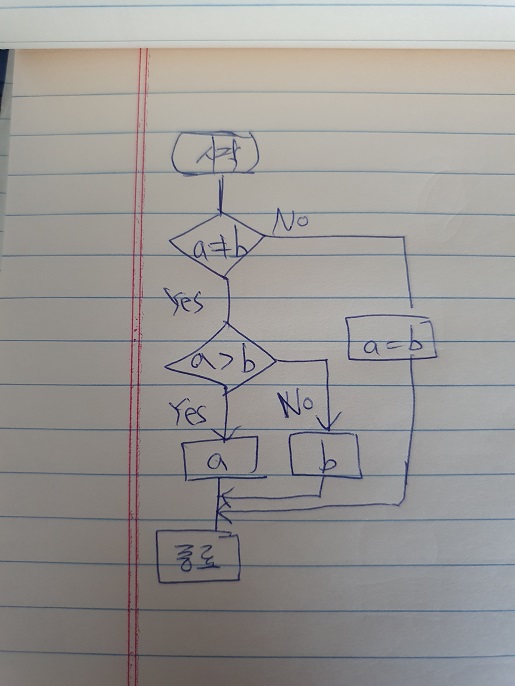 시작
a≠b
No
Yes
a=b
a>b
Yes
No
a
b
종료